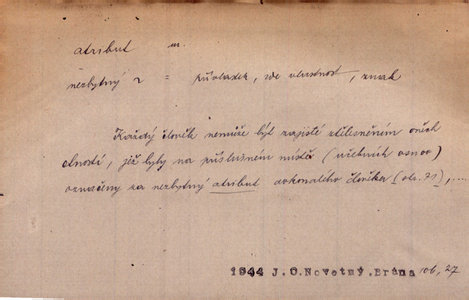 atribut m.
nezbytný ~ = přívlastek, zde vlastnost, znak
Každý člověk nemůže být zajisté ztělesněním oněch
ctností, jež byly na příslušném místě (učebních osnov)
označeny za nezbytný atribut dokonalého člověka (str. 31), ....
1944 J.O.Novotný.Brána 106, 27